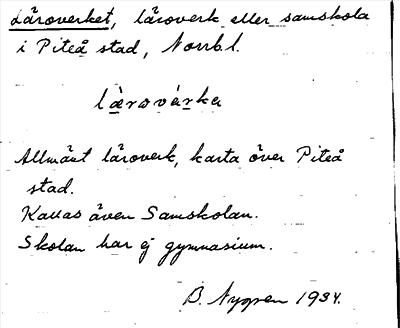 Läroverket, läroverk eller samskola
i Piteå stad, Norrb. l.
lärovärka
Allmänt läroverk, karta över Piteå
stad.
Kallas även Samskolan.
Skolan har ej gymnasium.
B. Nygren 1934.